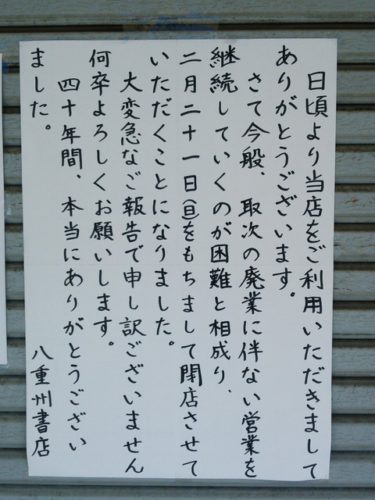 日頃より当店をご利用いただきまして
ありがとうございます。
さて今般、取次の廃業に伴ない営業を
継続していくのが困難と相成り、
二月二十一日㈰をもちまして閉店させて
いただくことになりました。
大変急なご報告で申し訳ございません
何卒よろしくお願いします。
四十年間、本当にありがとうござい
ました。
八重州書店